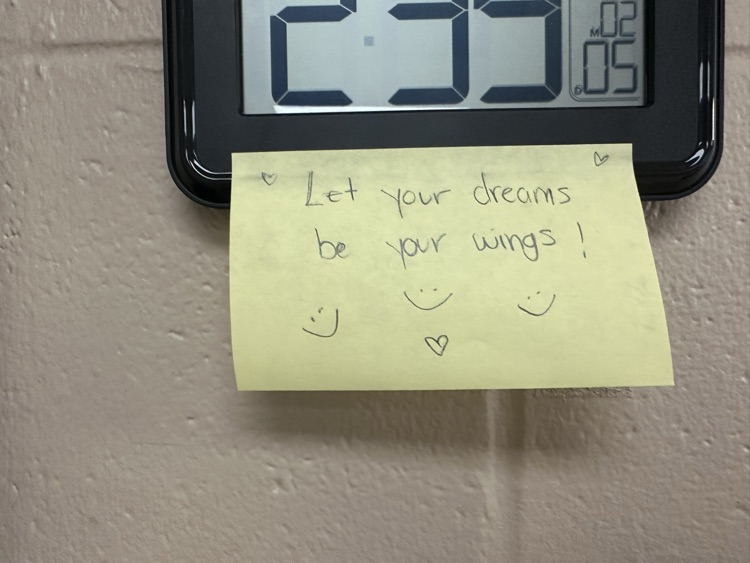 2:39
M02
D05
Let your dreams
be your wings!